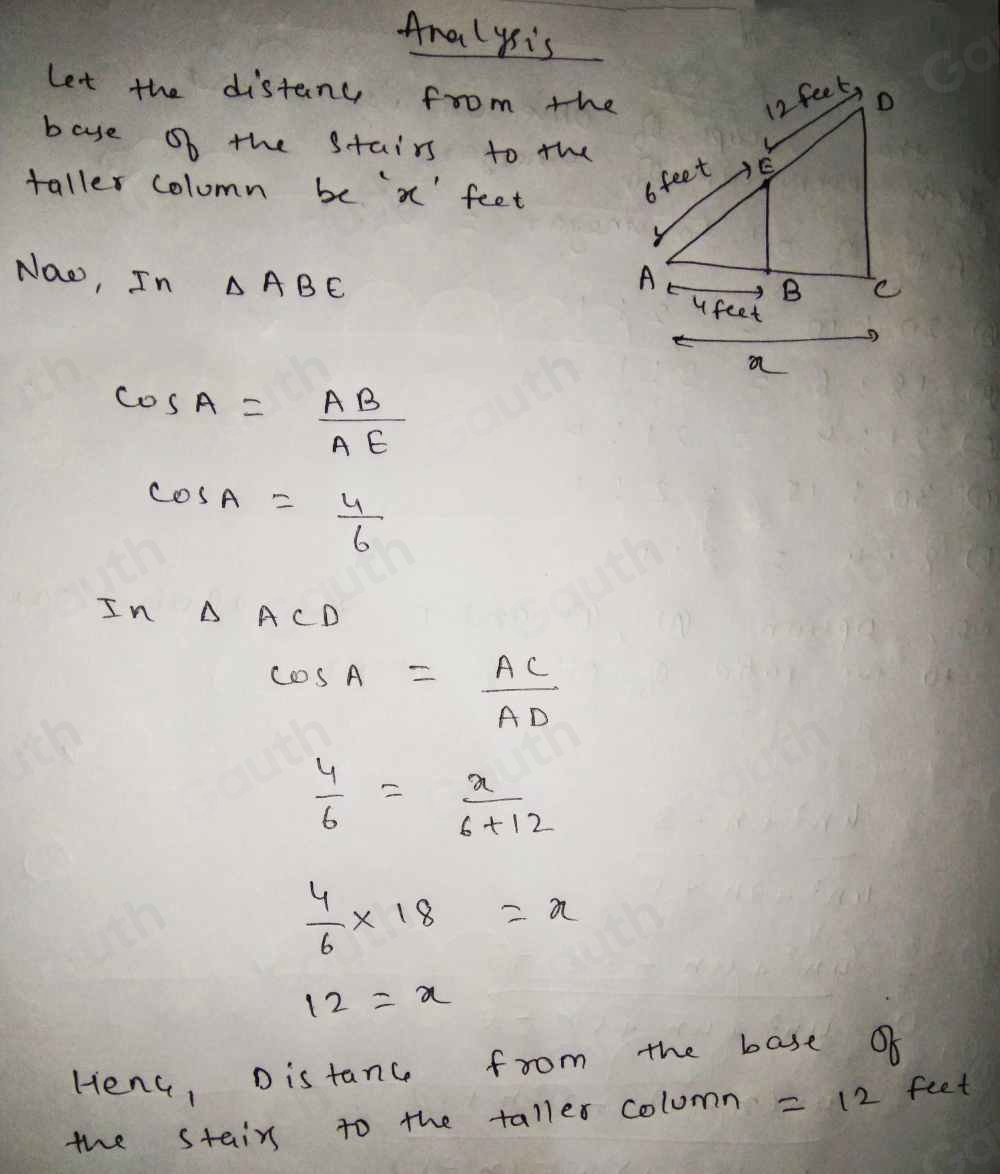 Analysis
Let the distance from the
base of the stairs to the
taller column be 'x' feet
12 feet
D
6 feet
E
A
B
C
4 feet
x
Now, In Δ ABE
cos A = AB / AE
cos A = 4 / 6
In Δ ACD
cos A = AC / AD
4 / 6 = x / 6+12
4 / 6 × 18 = x
12 = x
Hence, Distance from the base of
the stairs to the taller column = 12 feet
Gauth